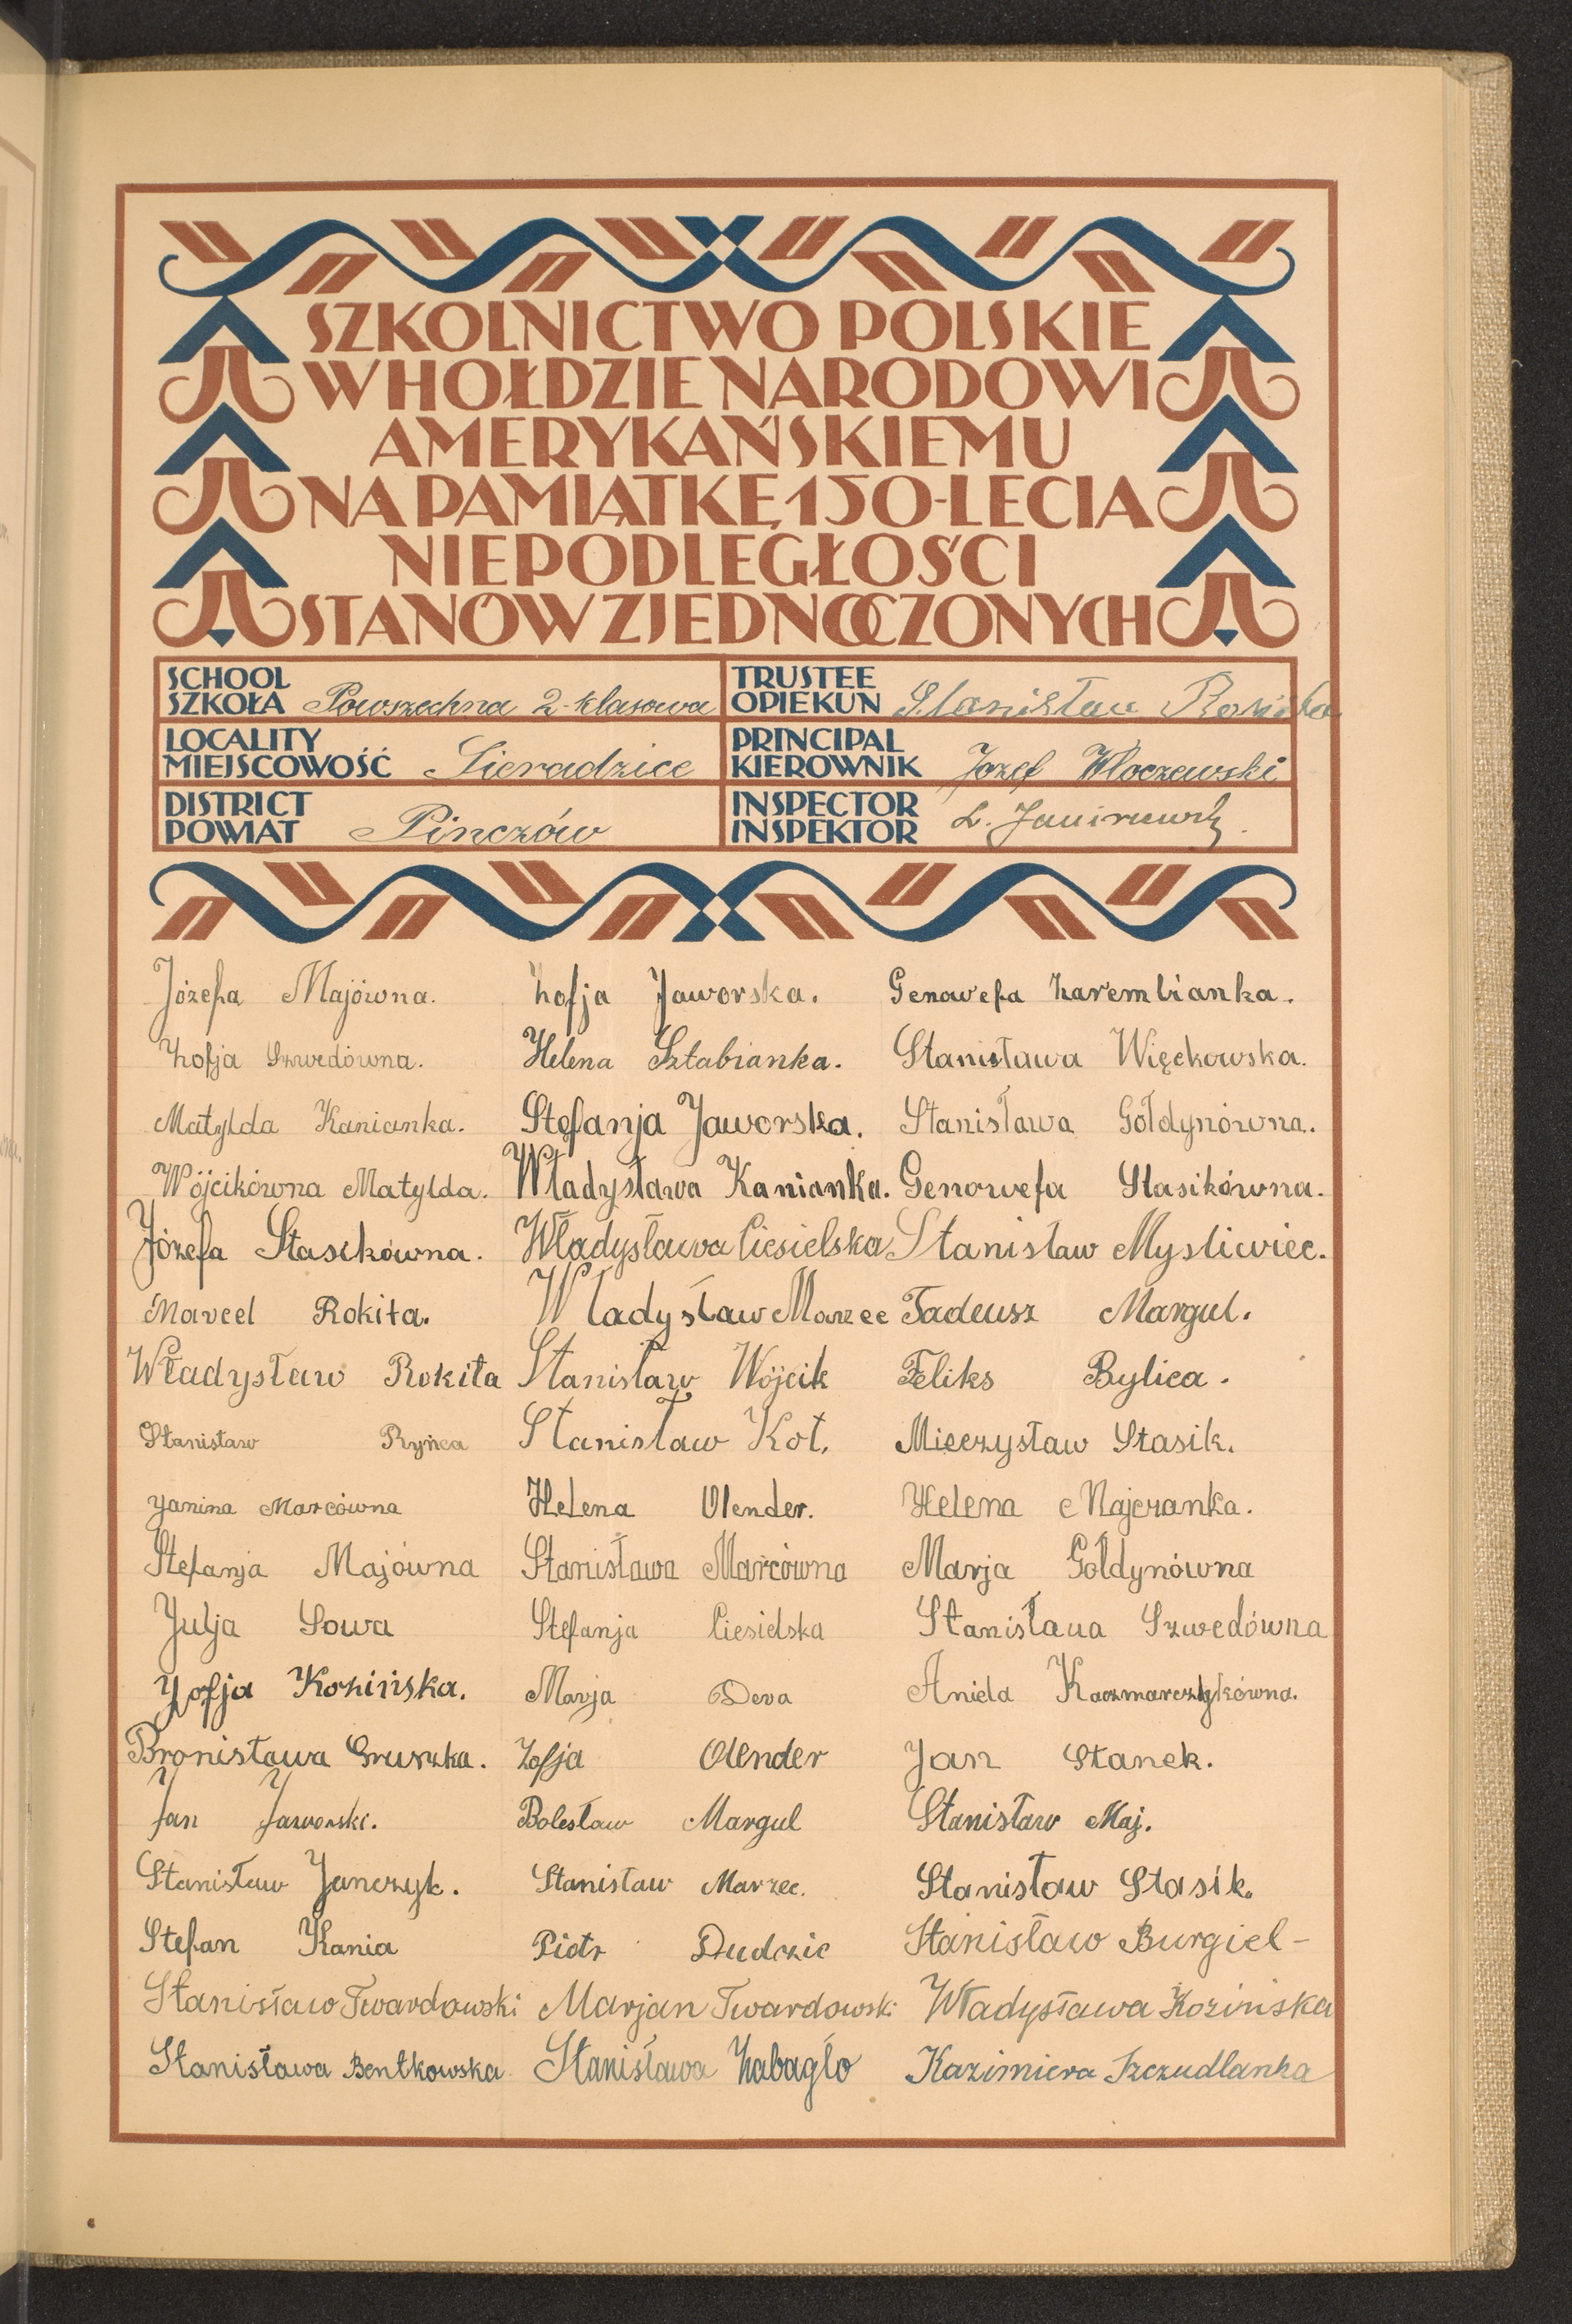 SZKOLNICTWO POLSKIE
W HOŁDZIE NARODOWI
AMERYKAŃSKIEMU
NA PAMIĄTKĘ 150-LECIA
NIEPODLEGŁOŚCI
STANÓW ZJEDNOCZONYCH
SCHOOL SZKOŁA Powszechna 2-klasowa
TRUSTEE OPIEKUN Stanisław
LOCALITY MIEJSCOWOŚĆ Sieradzice
PRINCIPAL KIEROWNIK Józef Włoczewski
DISTRICT POWIAT Pinczów
INSPECTOR INSPEKTOR L.
Józefa Majówna. Zofja Jaworska. Genowefa Zarembianka.
Zofja Szwedówna. Helena Sztabianka. Stanisława Więckowska.
Matylda Kanianka. Stefanja Jaworska. Stanisława Gołdynówna.
Wójcikówna Matylda. Władysława Kanianka. Genowefa Stasikówna.
Józefa Stasikówna. Władysława Ciesielska Stanisław Mysliwiec.
Marcel Rokita. Władysław Marzec Tadeusz Margul.
Władysław Rokita Stanisław Wójcik Feliks Bylica.
Stanisław Ryńca Stanisław Kot. Mieczysław Stasik.
Janina Marcówna Helena Olender. Helena Majeranka.
Stefanja Majówna Stanisława Marcówna Marja Gołdynówna
Julja Sowa Stefanja Ciesielska Stanisława Szwedówna
Zofja Kozińska. Marja Dera Aniela Kaczmarczykówna.
Bronisława Gruszka. Zofja Olender Jan Stanek.
Jan Jaworski. Bolesław Margul Stanisław Maj.
Stanisław Janczyk. Stanisław Marzec. Stanisław Stasik.
Stefan Kania Piotr Dudzic Stanisław Burgiel-
Stanisław Twardowski Marjan Twardowski Władysława Kozińska
Stanisława Bentkowska Stanisława Zabagło Kazimiera Szczudlanka